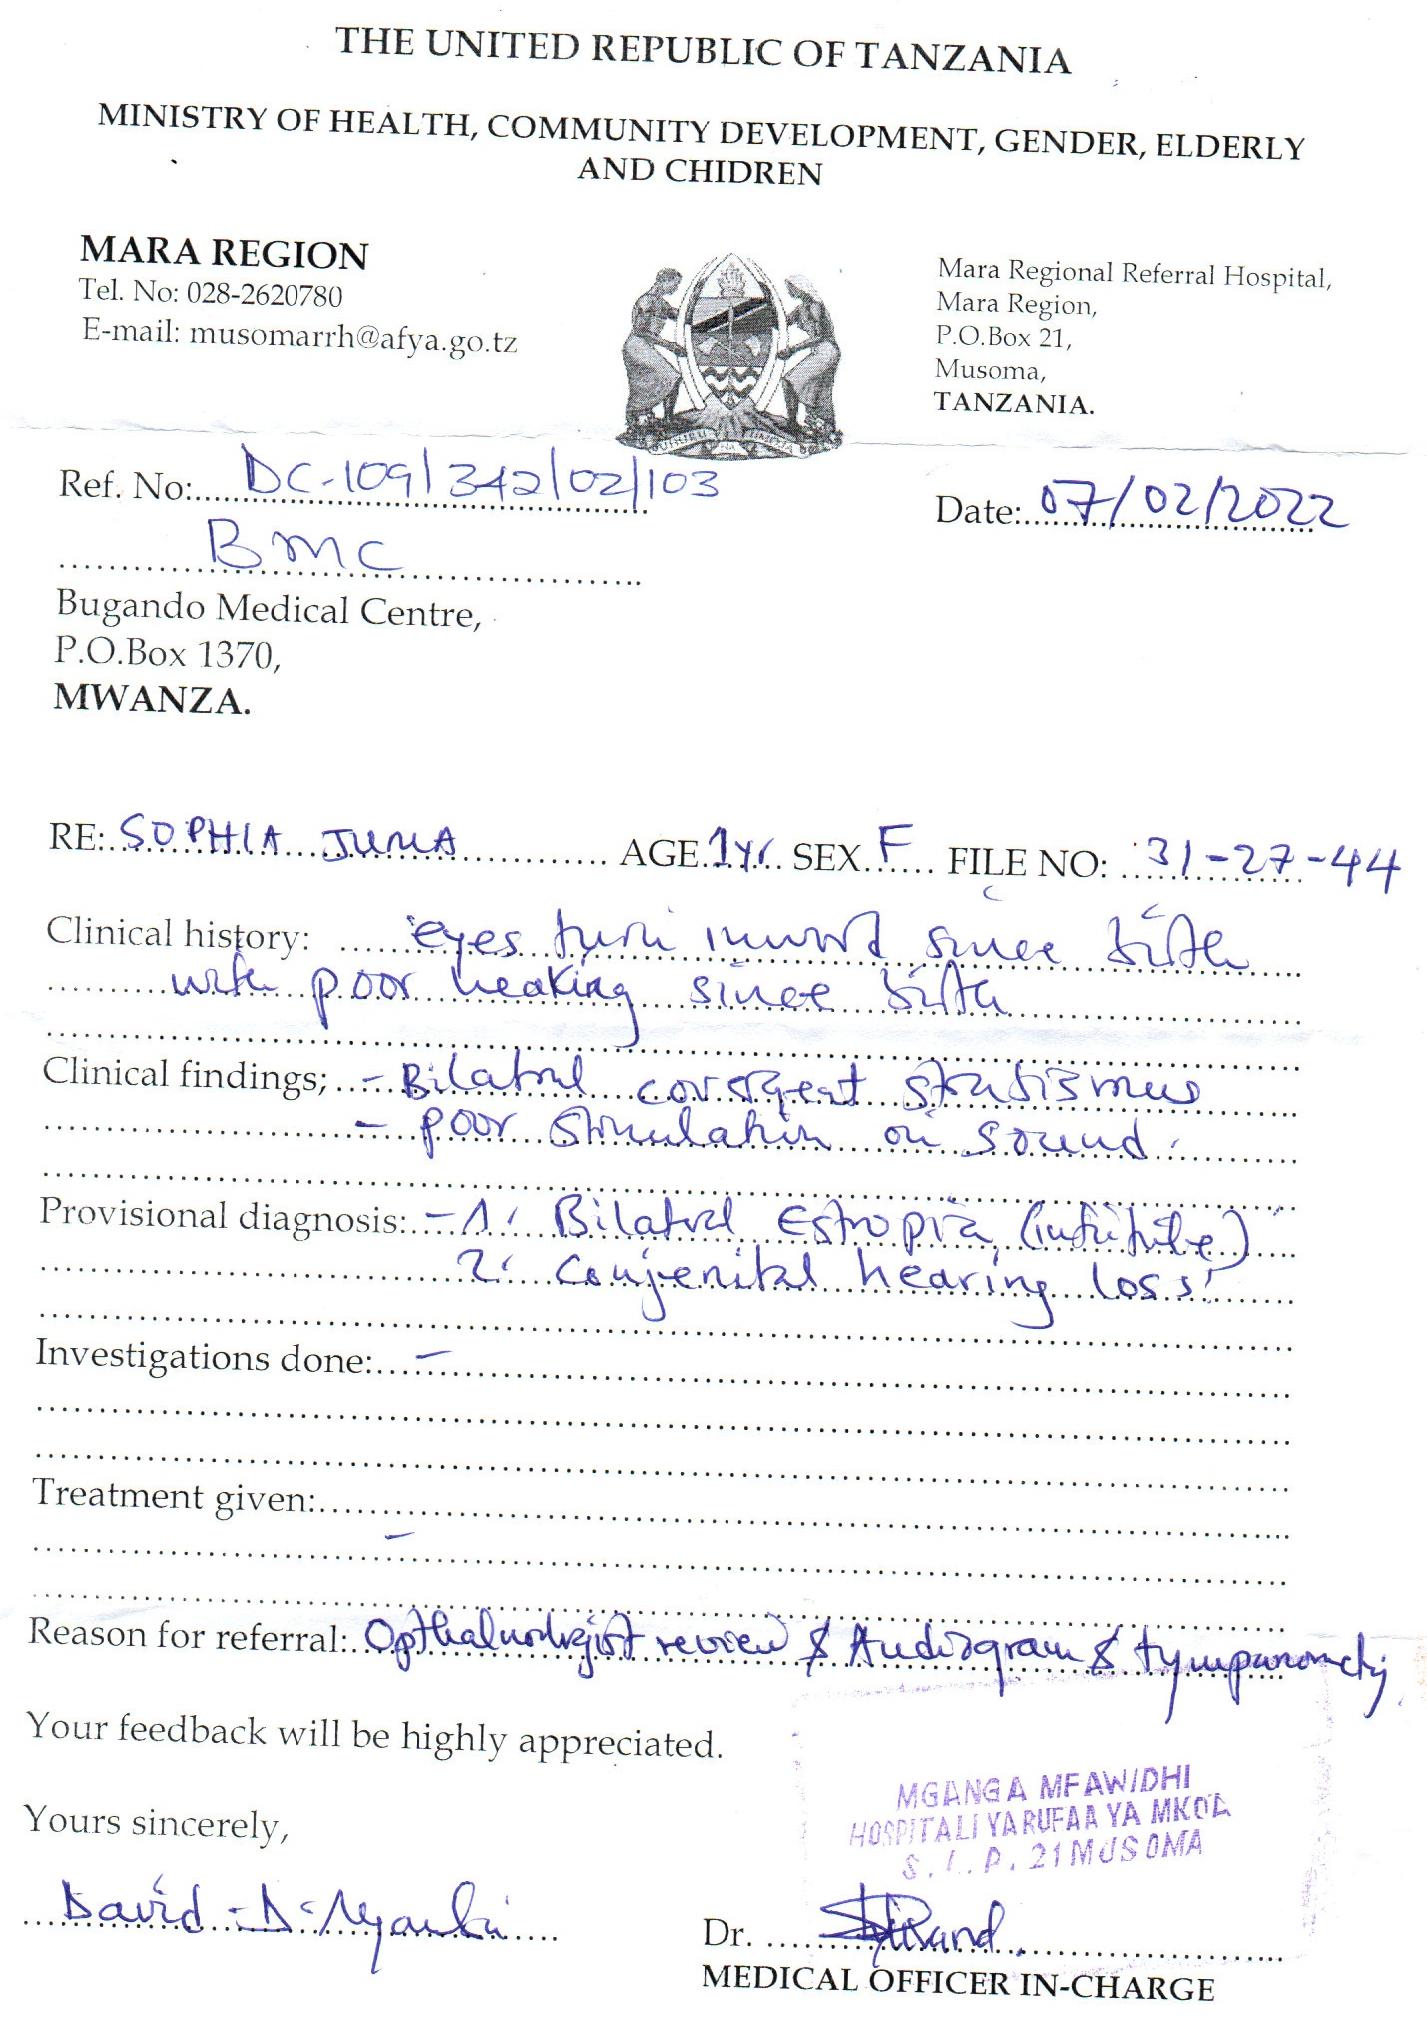 THE UNITED REPUBLIC OF TANZANIA
MINISTRY OF HEALTH, COMMUNITY DEVELOPMENT, GENDER, ELDERLY
AND CHIDREN
MARA REGION
Tel. No: 028-2620780
E-mail: musomarrh@afya.go.tz
Mara Regional Referral Hospital,
Mara Region,
P.O.Box 21,
Musoma,
TANZANIA.
UHURU NA UMOJA
Ref. No: DC-109/342/02/103
Date: 07/02/2022
BMC
Bugando Medical Centre,
P.O.Box 1370,
MWANZA.
RE: SOPHIA JUMA AGE 1yr SEX F FILE NO: 31-27-44
Clinical history: eyes turn inward since birth
with poor heaking since birth
Clinical findings; - Bilatral covergent strabismus
- poor stimulation on sound.
Provisional diagnosis: - 1. Bilatral Estropia
2. Conjenital hearing loss
Investigations done: -
Treatment given:
-
Reason for referral: Opthalmologist review & Audiogram & tympanometry
Your feedback will be highly appreciated.
MGANGA MFAWIDHI
HOSPITALI YA RUFAA YA MKOA
S.L.P. 21 MUSOMA
Yours sincerely,
David
Dr.
MEDICAL OFFICER IN-CHARGE